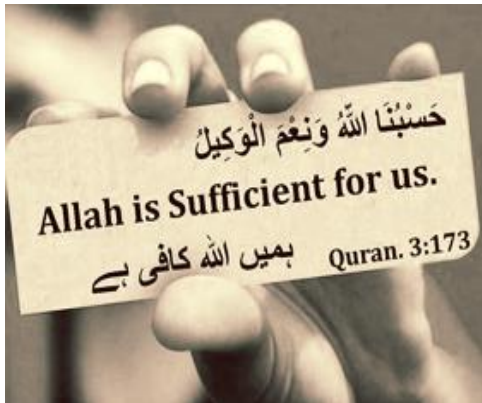 حَسْبُنَا اللّٰهُ وَنِعْمَ الْوَكِيلُ
Allah is Sufficient for us.
ہمیں اللہ کافی ہے
Quran. 3:173